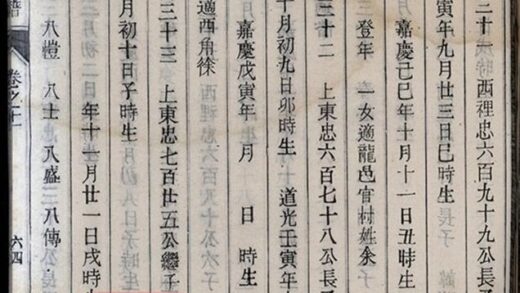 三十 西裡忠六百九十九公長子
寅年九月廿三日巳時生
嘉慶己巳年十月一日丑時生
登年 一女適龍邑官村姓余子
三十二 上東忠六百七十八公長子
十月初九日卯時生 道光壬寅年
嘉慶戊寅年 月 日 時生
適西角徐
三十三 上東忠七百廿五公繼子
月初十日子時生
年十一月廿一日戌時
八愷 八士 八盛 八傳
譜 卷之十一 六四